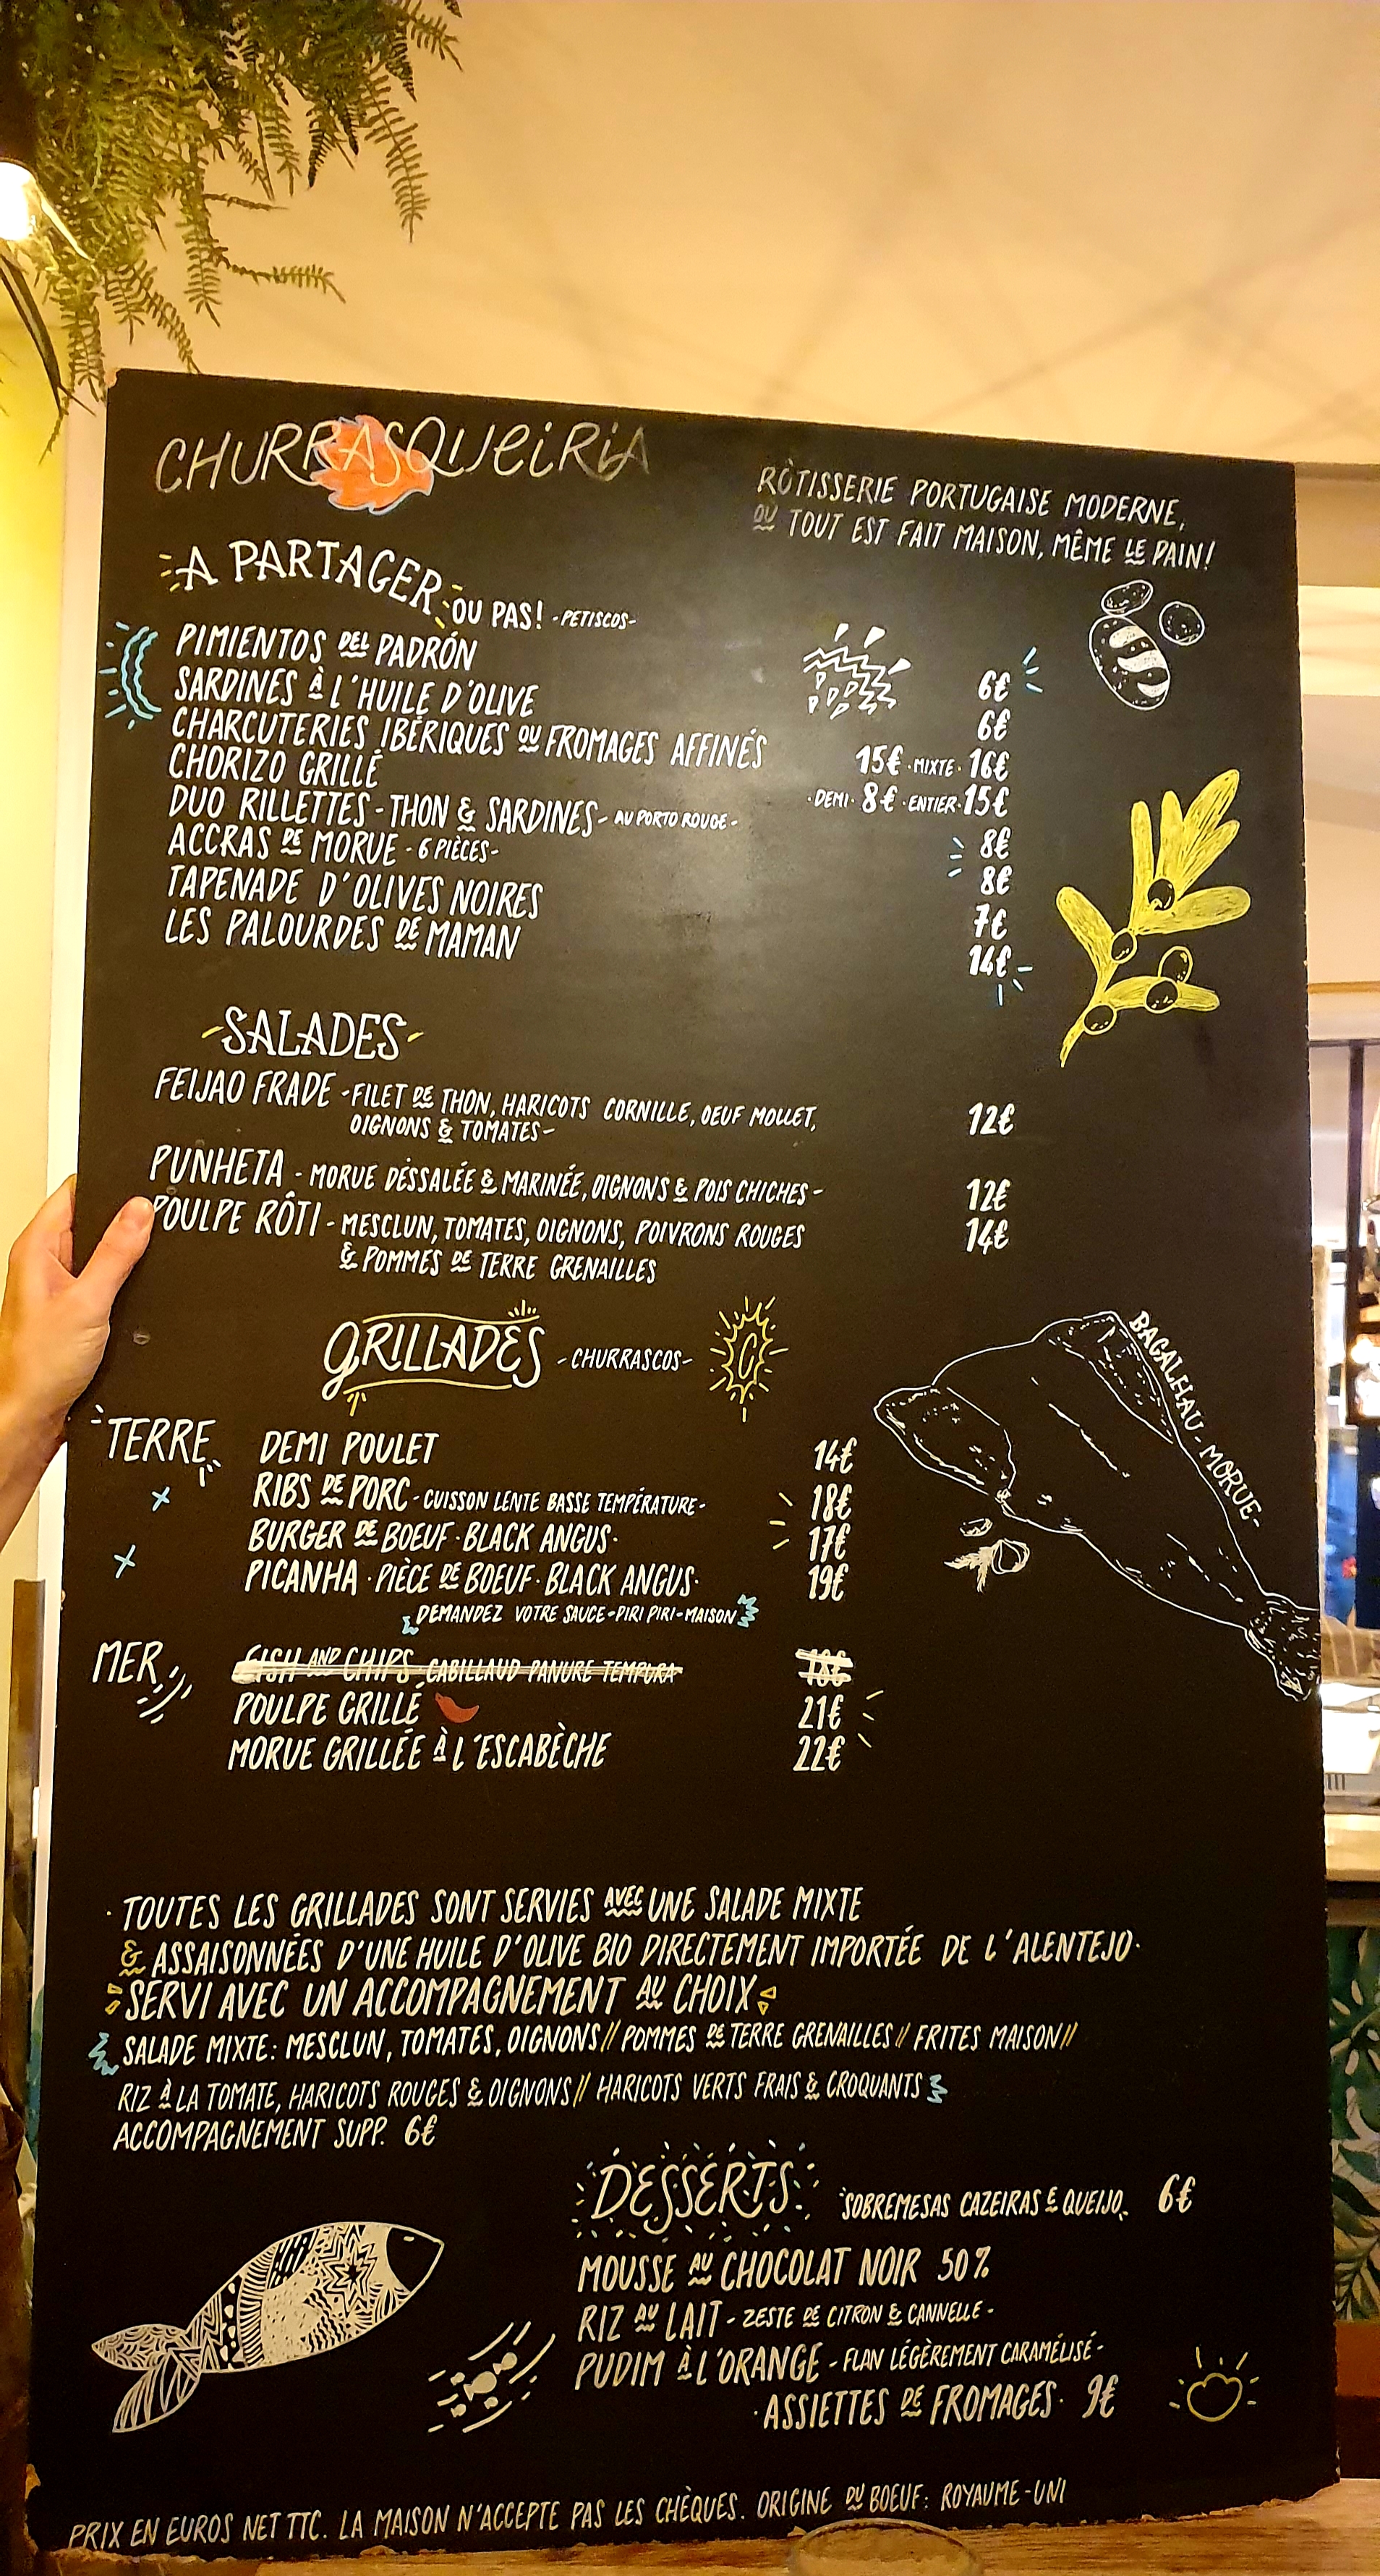 CHURRASQUEIRIA
RÔTISSERIE PORTUGAISE MODERNE,
OU TOUT EST FAIT MAISON, MÊME LE PAIN!
A PARTAGER OU PAS! -PETISCOS-
PIMIENTOS DEL PADRÓN 6€
SARDINES À L'HUILE D'OLIVE 6€
CHARCUTERIES IBÉRIQUES OU FROMAGES AFFINÉS 15€ · MIXTE · 16€
CHORIZO GRILLÉ · DEMI · 8€ · ENTIER · 15€
DUO RILLETTES - THON & SARDINES - AU PORTO ROUGE - 8€
ACCRAS DE MORUE - 6 PIÈCES - 8€
TAPENADE D'OLIVES NOIRES 7€
LES PALOURDES DE MAMAN 14€
-SALADES-
FEIJAO FRADE - FILET DE THON, HARICOTS CORNILLE, OEUF MOLLET, 12€
OIGNONS & TOMATES -
PUNHETA - MORUE DÉSSALÉE & MARINÉE, OIGNONS & POIS CHICHES - 12€
POULPE RÔTI - MESCLUN, TOMATES, OIGNONS, POIVRONS ROUGES 14€
& POMMES DE TERRE GRENAILLES
GRILLADES - CHURRASCOS - C
BACALHAU - MORUE -
TERRE DEMI POULET 14€
RIBS DE PORC - CUISSON LENTE BASSE TEMPÉRATURE - 18€
BURGER DE BOEUF · BLACK ANGUS · 17€
PICANHA · PIÈCE DE BOEUF · BLACK ANGUS · 19€
DEMANDEZ VOTRE SAUCE - PIRI PIRI - MAISON
MER FISH AND CHIPS CABILLAUD PANURE TEMPURA 18€
POULPE GRILLÉ 21€
MORUE GRILLÉE À L'ESCABÈCHE 22€
· TOUTES LES GRILLADES SONT SERVIES AVEC UNE SALADE MIXTE
& ASSAISONNÉES D'UNE HUILE D'OLIVE BIO DIRECTEMENT IMPORTÉE DE L'ALENTEJO ·
SERVI AVEC UN ACCOMPAGNEMENT AU CHOIX
SALADE MIXTE: MESCLUN, TOMATES, OIGNONS // POMMES DE TERRE GRENAILLES // FRITES MAISON //
RIZ À LA TOMATE, HARICOTS ROUGES & OIGNONS // HARICOTS VERTS FRAIS & CROQUANTS
ACCOMPAGNEMENT SUPP. 6€
DESSERTS SOBREMESAS CAZEIRAS E QUEIJO 6€
MOUSSE AU CHOCOLAT NOIR 50%
RIZ AU LAIT - ZESTE DE CITRON & CANNELLE -
PUDIM À L'ORANGE - FLAN LÉGÈREMENT CARAMÉLISÉ -
· ASSIETTES DE FROMAGES · 9€
PRIX EN EUROS NET TTC. LA MAISON N'ACCEPTE PAS LES CHÈQUES. ORIGINE DU BOEUF: ROYAUME-UNI